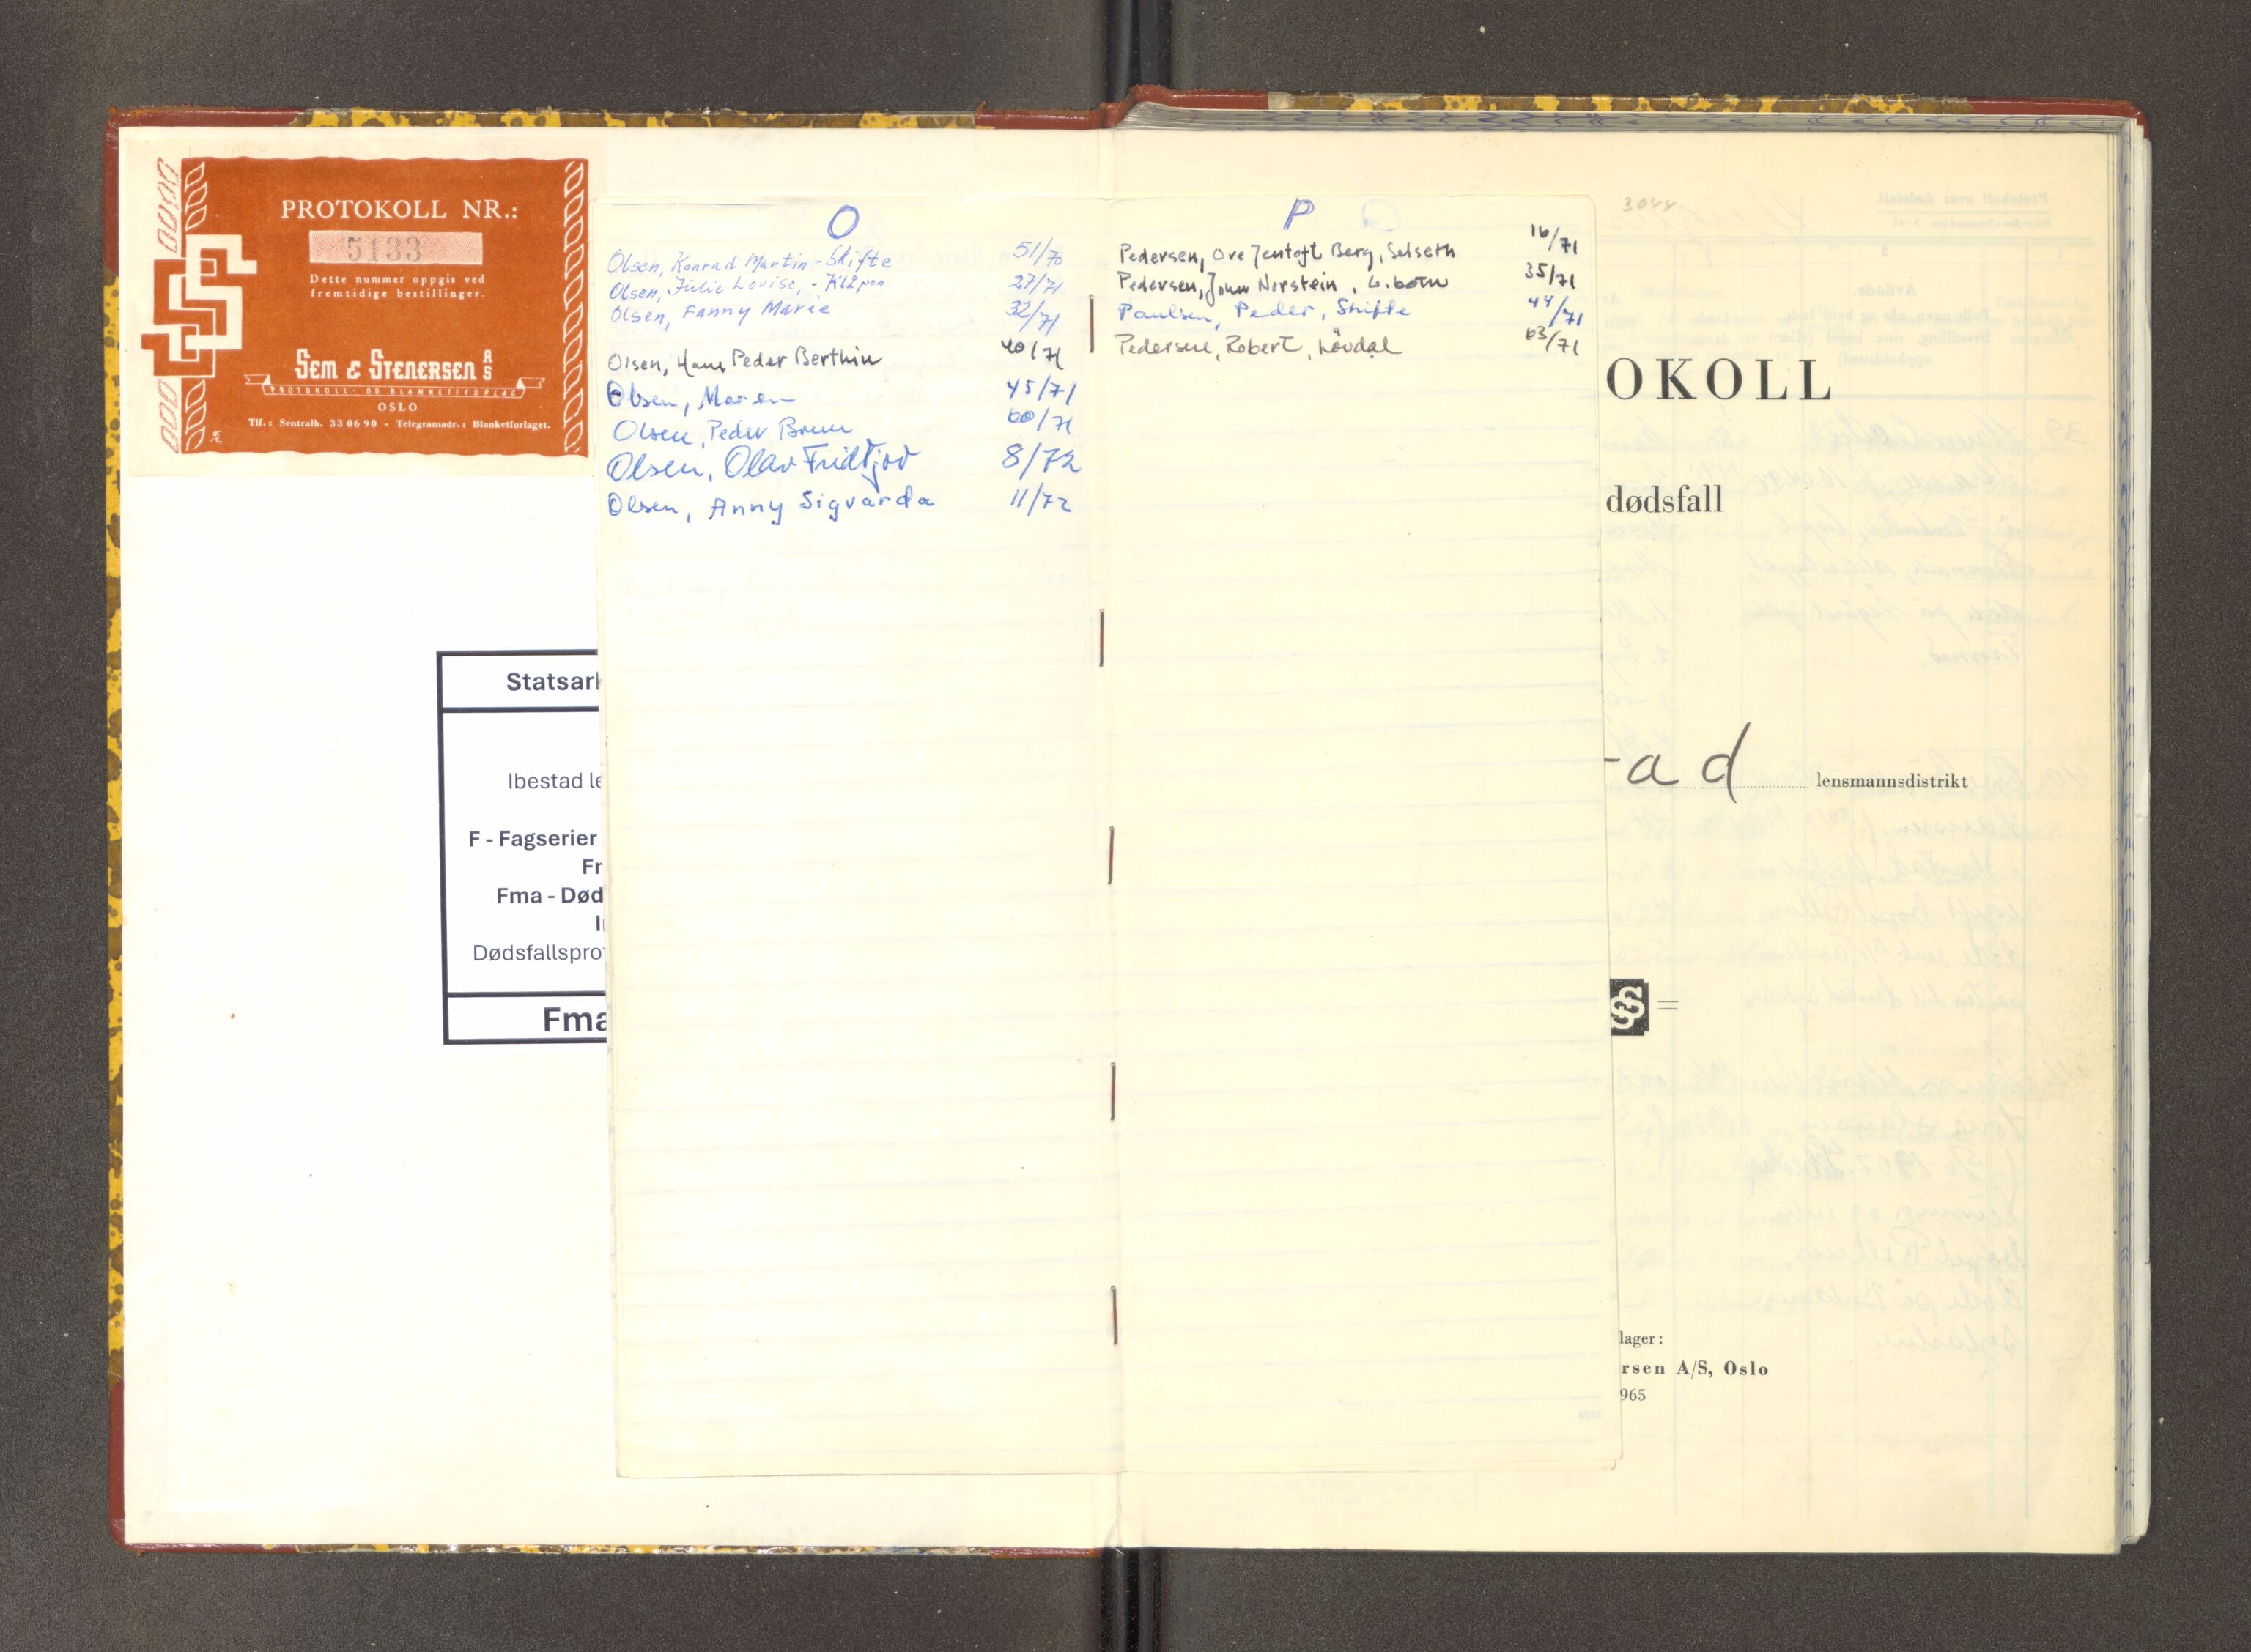 PROTOKOLL NR.:
5133
Dette nummer oppgis ved
fremtidige bestillinger.
SEM & STENERSEN A/S
PROTOKOLL- OG BLANKETTFORLAG
OSLO
Tlf.: Sentralb. 330690 - Telegramadr.: Blanketforlaget.
Statsark
Ibestad le
F - Fagserier
Fr
Fma - Død
I
Dødsfallsprot
Fma
O
Olsen, Konrad Martin - Skifte 51/70
Olsen, Julie Lovise, - Klåpen 27/71
Olsen, Fanny Marie 32/71
Olsen, Hans Peder Berthin 40/71
Olsen, Maren 45/71
Olsen, Peder Brun 60/71
Olsen, Olav Fridtjov 8/72
Olsen, Anny Sigvarda 11/72
P
Pedersen, Ove Jentoft Berg, Selseth 16/71
Pedersen, John Norstein, 35/71
Paulsen, Peder, Skifte 44/71
Pedersen, Robert, Løvdal 63/71
3044
OKOLL
dødsfall
ad lensmannsdistrikt
SS
lager:
rsen A/S, Oslo
965